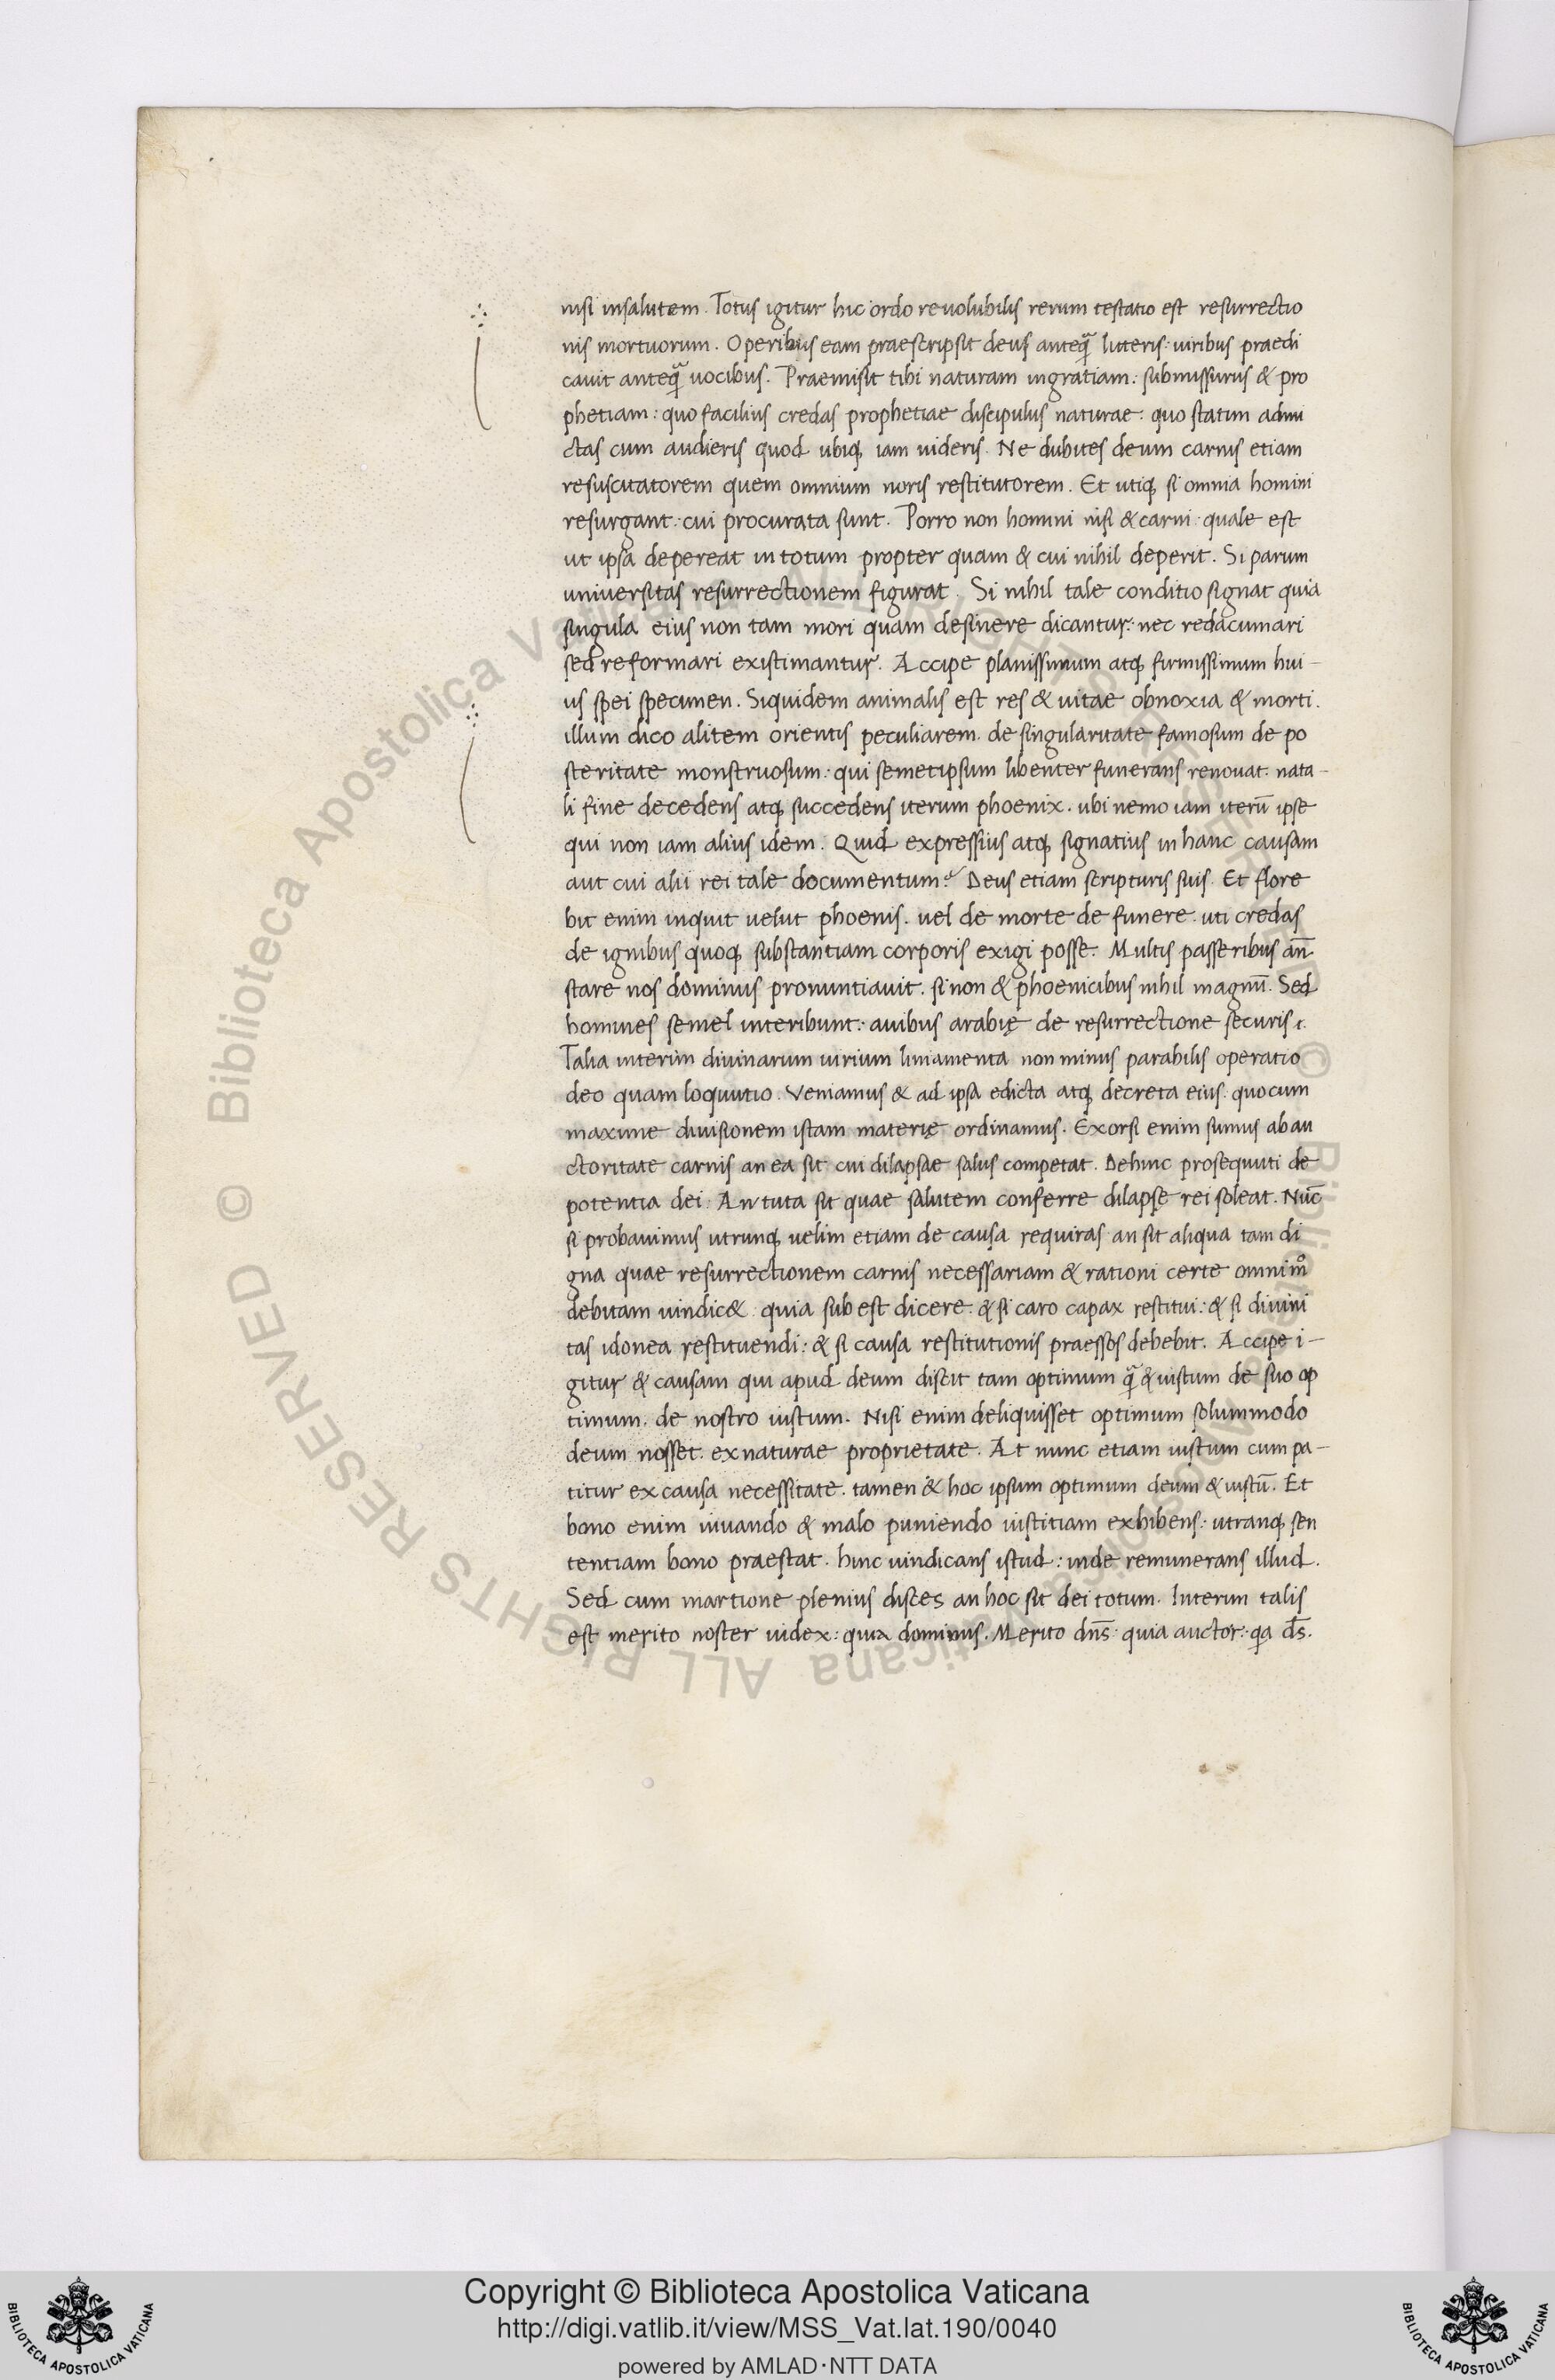 nisi insalutem. Totus igitur hic ordo reuolubilis rerum testatio est resurrectio
nis mortuorum. Operibus eam praescripsit deus anteq̃ litteris: uiribus praedi
cauit anteq̃ uocibus. Praemisit tibi naturam ingratiam: submissurus & pro
phetiam: quo facilius credas prophetiae discipulus naturae: quo statim admi
ctas cum audieris quod ubiq; iam uideris. Ne dubites deum carnis etiam
resuscitatorem quem omnium noris restitutorem. Et utiq; si omnia homini
resurgant: cui procurata sunt. Porro non homini nisi & carni: quale est
ut ipsa depereat in totum propter quam & cui nihil deperit. Si parum
universitas resurrectionem figurat. Si nihil tale conditio signat quia
singula eius non tam mori quam desinere dicantur: nec redacumari
sed reformari existimantur. Accipe planissimum atq; firmissimum hui-
us spei specimen. Siquidem animalis est res & uitae obnoxia & morti.
illum dico alitem orientis peculiarem. de singularitate famosum de po
steritate monstruosum: qui semetipsum libenter funerans renouat. nata-
li fine decedens atq; succedens iterum phoenix. ubi nemo iam iterū ipse
qui non iam alius idem. Quid expressius atq; signatius in hanc causam
aut cui alii rei tale documentum? Deus etiam scripturis suis. Et flore
bit enim inquit uelut phoenis. uel de morte de funere. uti credas
de ignibus quoq; substantiam corporis exigi posse. Multis passeribus an̄
stare nos dominus pronuntiauit. si non & phoenicibus nihil magnū. Sed
homines semel interibunt: auibus arabię de resurrectione securis.
Talia interim diuinarum uirium liniamenta non minus parabilis operatio
deo quam loquutio. Veniamus & ad ipsa edicta atq; decreta eius. quocum
maxime diuisionem istam materię ordinamus. Exorsi enim sumus ab au
ctoritate carnis an ea sit cui dilapsae salus competat. Dehinc prosequuti de
potentia dei. An tuta sit quae salutem conferre dilapse rei soleat. Nūc
si probauimus utrunq; uelim etiam de causa requiras an sit aliqua tam di
gna quae resurrectionem carnis necessariam & rationi certe omnim̊
debitam uindic&. quia sub est dicere. & si caro capax restitui: & si diuini
tas idonea restituendi: & si causa restitutionis praessos debebit. Accipe i-
gitur & causam qui apud deum discit tam optimum q̃ & iustum de suo op
timum. de nostro iustum. Nisi enim deliquisset optimum solummodo
deum nosset. ex naturae proprietate. At nunc etiam iustum cum pa-
titur ex causa necessitate. tamen & hoc ipsum optimum deum & iustū. Et
bono enim iuuando & malo puniendo iustitiam exhibens: utranq; sen
tentiam bono praestat. hinc uindicans istud: inde remunerans illud.
Sed cum martione plenius disces an hoc sit dei totum. Interim talis
est merito noster iudex: quia dominus. Merito dn̄s: quia auctor: qa d̄s.
Copyright © Biblioteca Apostolica Vaticana
http://digi.vatlib.it/view/MSS_Vat.lat.190/0040
powered by AMLAD·NTT DATA
BIBLIOTECA APOSTOLICA VATICANA
BIBLIOTECA APOSTOLICA VATICANA
© Biblioteca Apostolica Vaticana ALL RIGHTS RESERVED
© Biblioteca Apostolica Vaticana ALL RIGHTS RESERVED